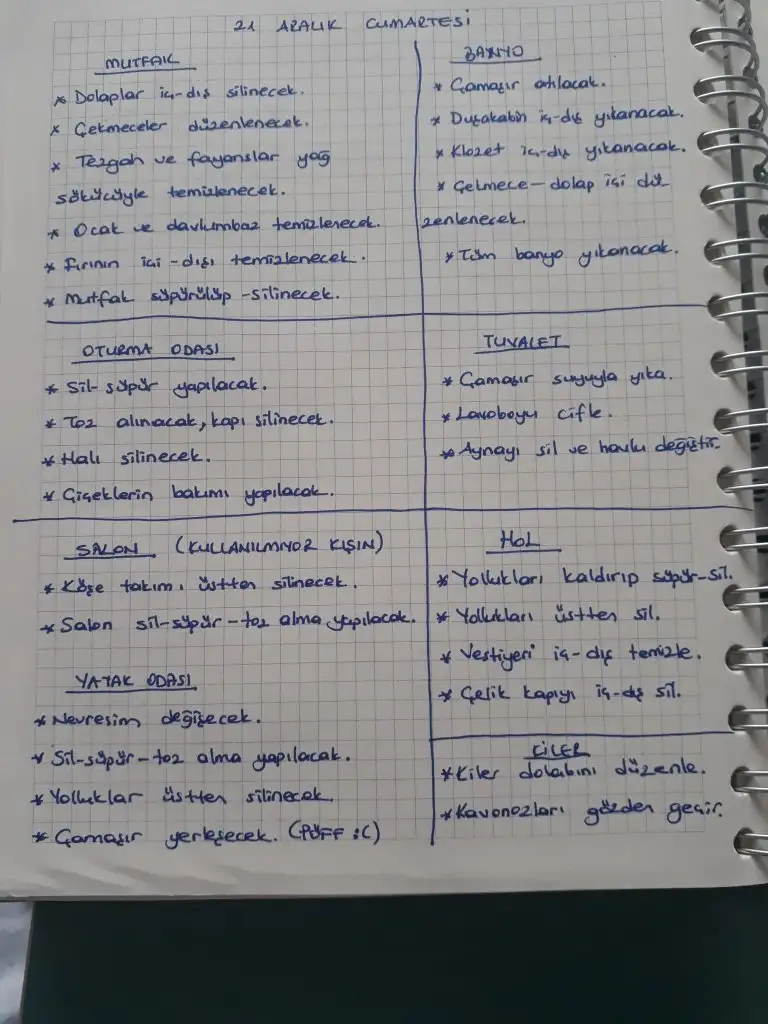 21 ARALIK CUMARTESİ
MUTFAK
* Dolaplar iç-dış silinecek.
* Çekmeceler düzenlenecek.
* Tezgah ve fayanslar yağ
sökücüyle temizlenecek.
* Ocak ve davlumbaz temizlenecek.
* Fırının içi-dışı temizlenecek.
* Mutfak süpürülüp-silinecek.
BANYO
* Çamaşır atılacak.
* Duşakabin iç-dış yıkanacak.
* Klozet iç-dış yıkanacak.
* Çekmece-dolap içi dü
zenlenecek.
* Tüm banyo yıkanacak.
OTURMA ODASI
* Sil-süpür yapılacak.
* Toz alınacak, kapı silinecek.
* Halı silinecek.
* Çiçeklerin bakımı yapılacak.
TUVALET
* Çamaşır suyuyla yıka.
* Lavoboyu cifle.
* Aynayı sil ve havlu değiştir.
SALON (KULLANILMIYOZ KIŞIN)
* Köşe takımı üstten silinecek.
* Salon sil-süpür-toz alma yapılacak.
YATAK ODASI
* Nevresim değişecek.
* Sil-süpür-toz alma yapılacak.
* Yolluklar üstten silinecek.
* Çamaşır yerleşecek. (PÜFF :()
HOL
* Yollukları kaldırıp süpür-sil.
* Yollukları üstten sil.
* Vestiyeri iç-dış temizle.
* Çelik kapıyı iç-dış sil.
KİLER
* Kiler dolabını düzenle.
* Kavanozları gözden geçir.